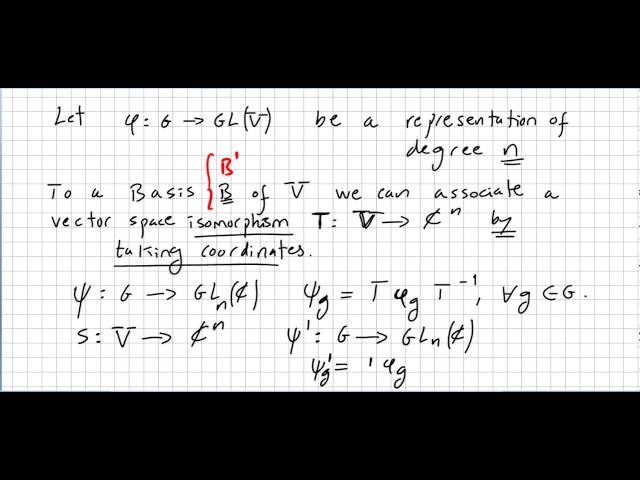 Let φ: G → GL(V) be a representation of
degree n
B'
To a Basis B of V we can associate a
vector space isomorphism T: V → ℂⁿ by
taking coordinates.
ψ: G → GLₙ(ℂ) ψg = T φg T⁻¹, ∀g ∈ G.
S: V → ℂⁿ ψ': G → GLₙ(ℂ)
ψg' = ' φg